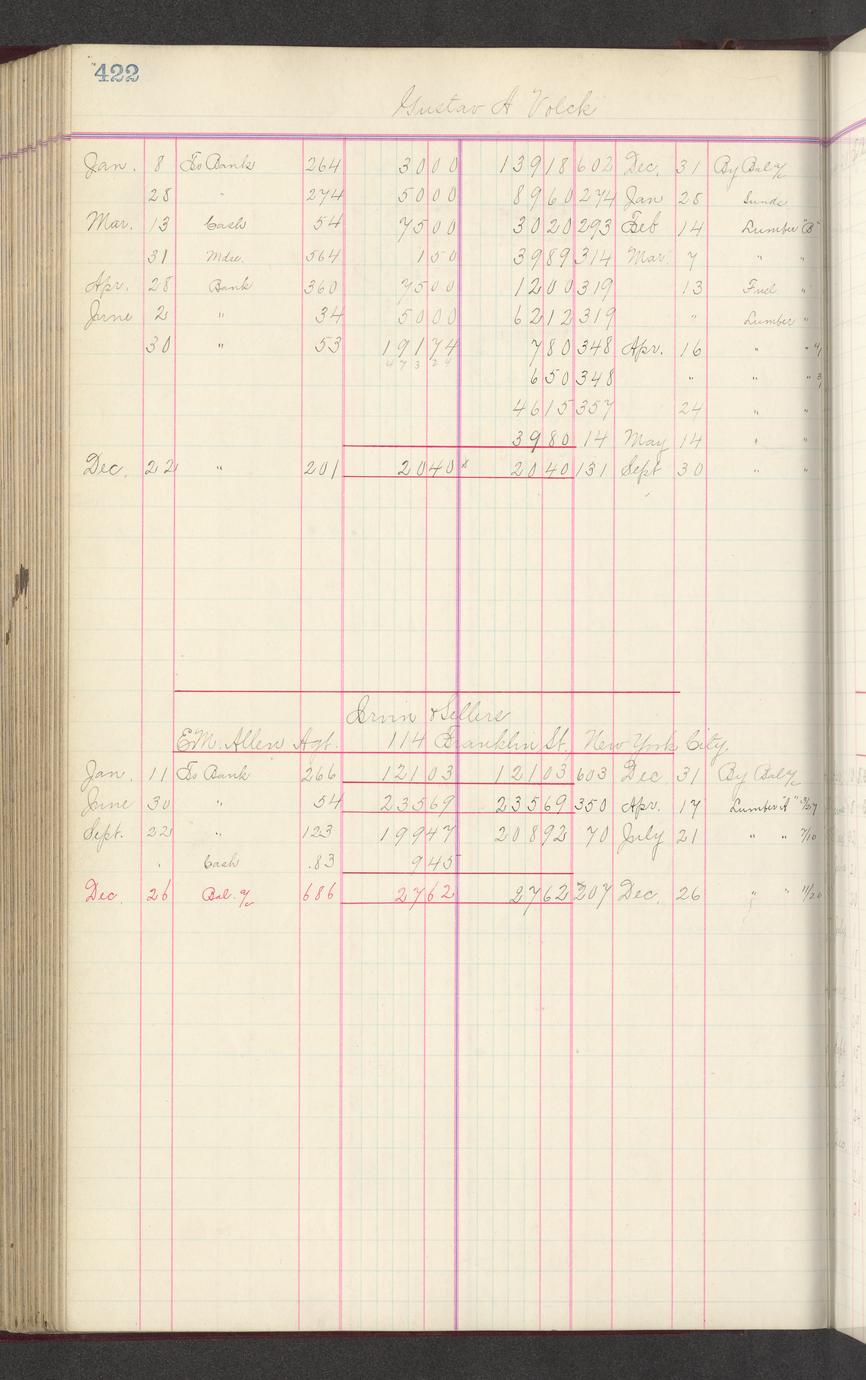 422
Gustav A Volck
Jan. 8 To Bank 264 3000 13918 602 Dec. 31 By Bal %
28 " 274 5000 8960 274 Jan 28 Sunds
Mar. 13 Cash 54 7500 3020 293 Feb 14 Lumber "B"
31 Mdse. 564 150 3989 314 Mar. 7 " "
Apr. 28 Bank 360 7500 1200 319 13 Fuel "
June 2 " 34 5000 6212 319 " Lumber "
30 " 53 19174 780 348 Apr. 16 " "
47324 650 348 " " "
4615 357 24 " "
3980 14 May 14 " "
Dec. 22 " 201 2040 x 2040 131 Sept 30 " "
Irvin & Sellers
E.M. Allen Agt. 114 Franklin St, New York City.
Jan. 11 To Bank 266 12103 12103 603 Dec 31 By Bal %
June 30 " 54 23569 23569 350 Apr. 17 Lumber "A"
Sept. 22 " 123 19947 20892 70 July 21 " " 7/10
" Cash .83 945
Dec. 26 Bal. % 686 2762 2762 207 Dec. 26 " "